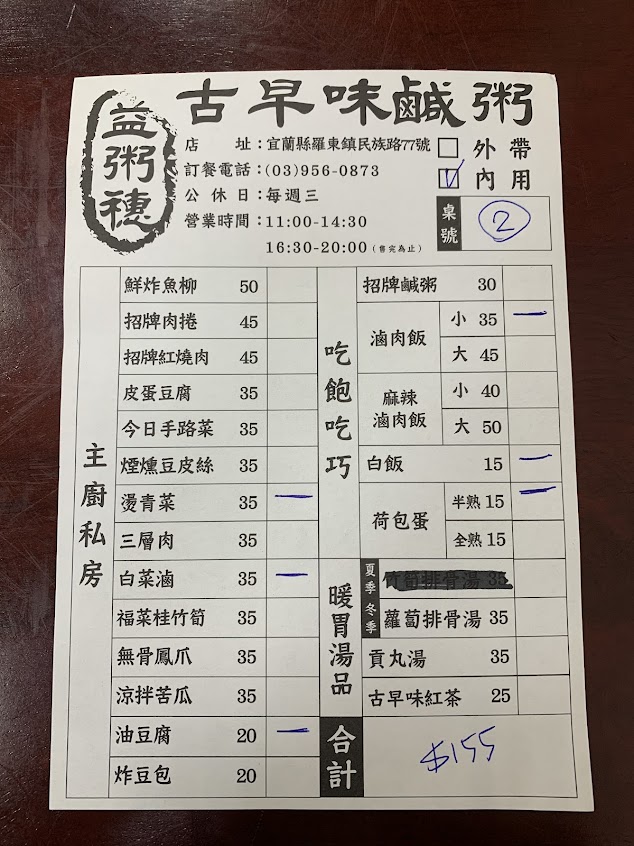 益粥穗
古早味鹹粥
店 址：宜蘭縣羅東鎮民族路77號
訂餐電話：(03)956-0873
公休日：每週三
營業時間：11:00-14:30
16:30-20:00（售完為止）
外帶
內用
桌號 2
主廚私房
鮮炸魚柳 50
招牌肉捲 45
招牌紅燒肉 45
皮蛋豆腐 35
今日手路菜 35
煙燻豆皮絲 35
燙青菜 35 一
三層肉 35
白菜滷 35 一
福菜桂竹筍 35
無骨鳳爪 35
涼拌苦瓜 35
油豆腐 20 一
炸豆包 20
吃飽吃巧
招牌鹹粥 30
滷肉飯 小 35 一
大 45
麻辣滷肉飯 小 40
大 50
白飯 15 一
荷包蛋 半熟 15 一
全熟 15
暖胃湯品
夏季 竹筍排骨湯 35
冬季 蘿蔔排骨湯 35
貢丸湯 35
古早味紅茶 25
合計 $155